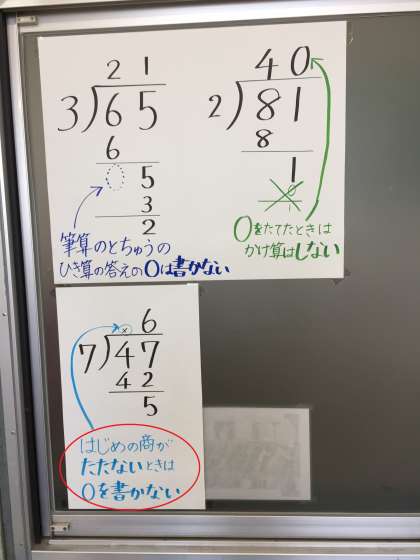 2 1
3)65
6
0 5
3
2
筆算のとちゅうの
ひき算の答えの0は書かない
40
2)81
8
1
0
1
0をたてたときは
かけ算はしない
× 6
7)47
42
5
はじめの商が
たたないときは
0を書かない